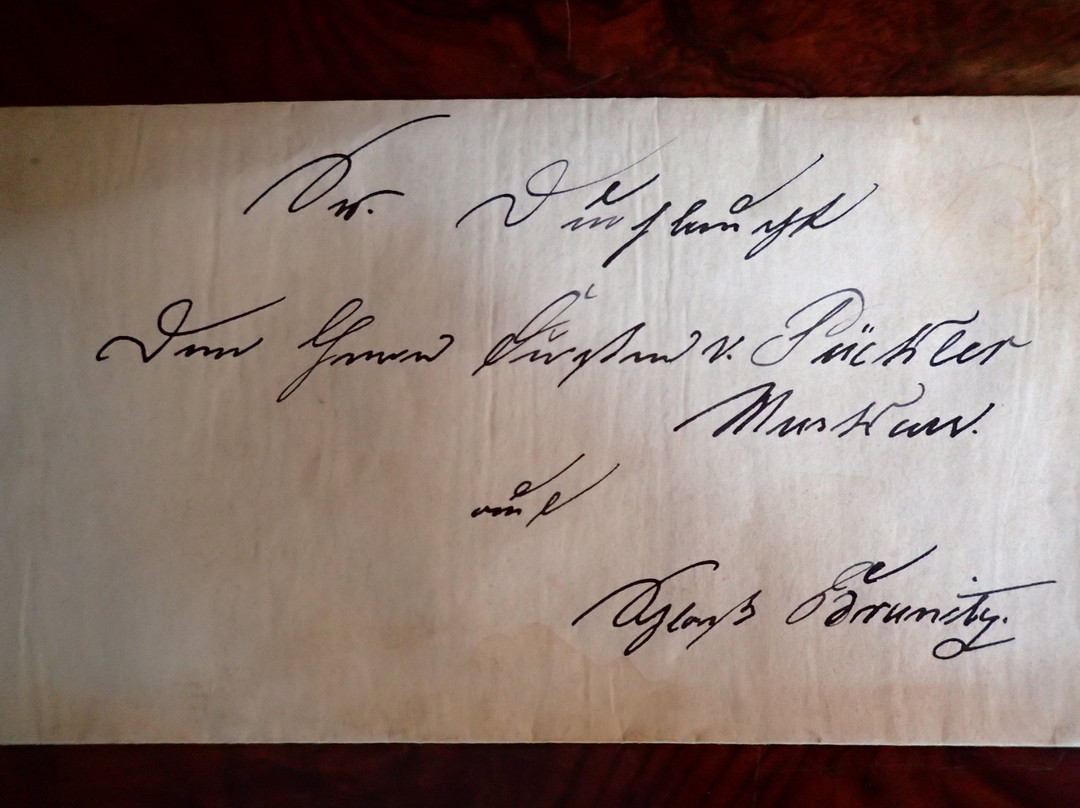 Sr. Durchlaucht
Dem Herrn Fürsten v. Pückler
Muskau.
auf
Schloß Branitz.